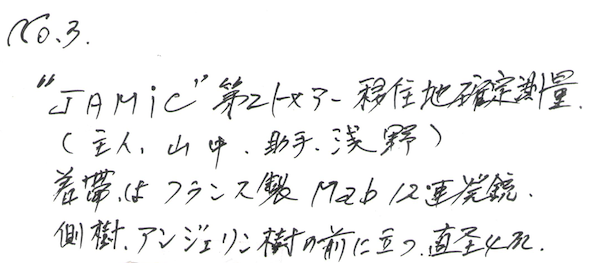 No.3.
"JAMIC" 第2トメアー移住地確定測量.
(主人、山中、助手、浅野)
着帯はフランス製 Mab 12連発銃.
側樹、アンジェリン樹の前に立つ、直径4m.